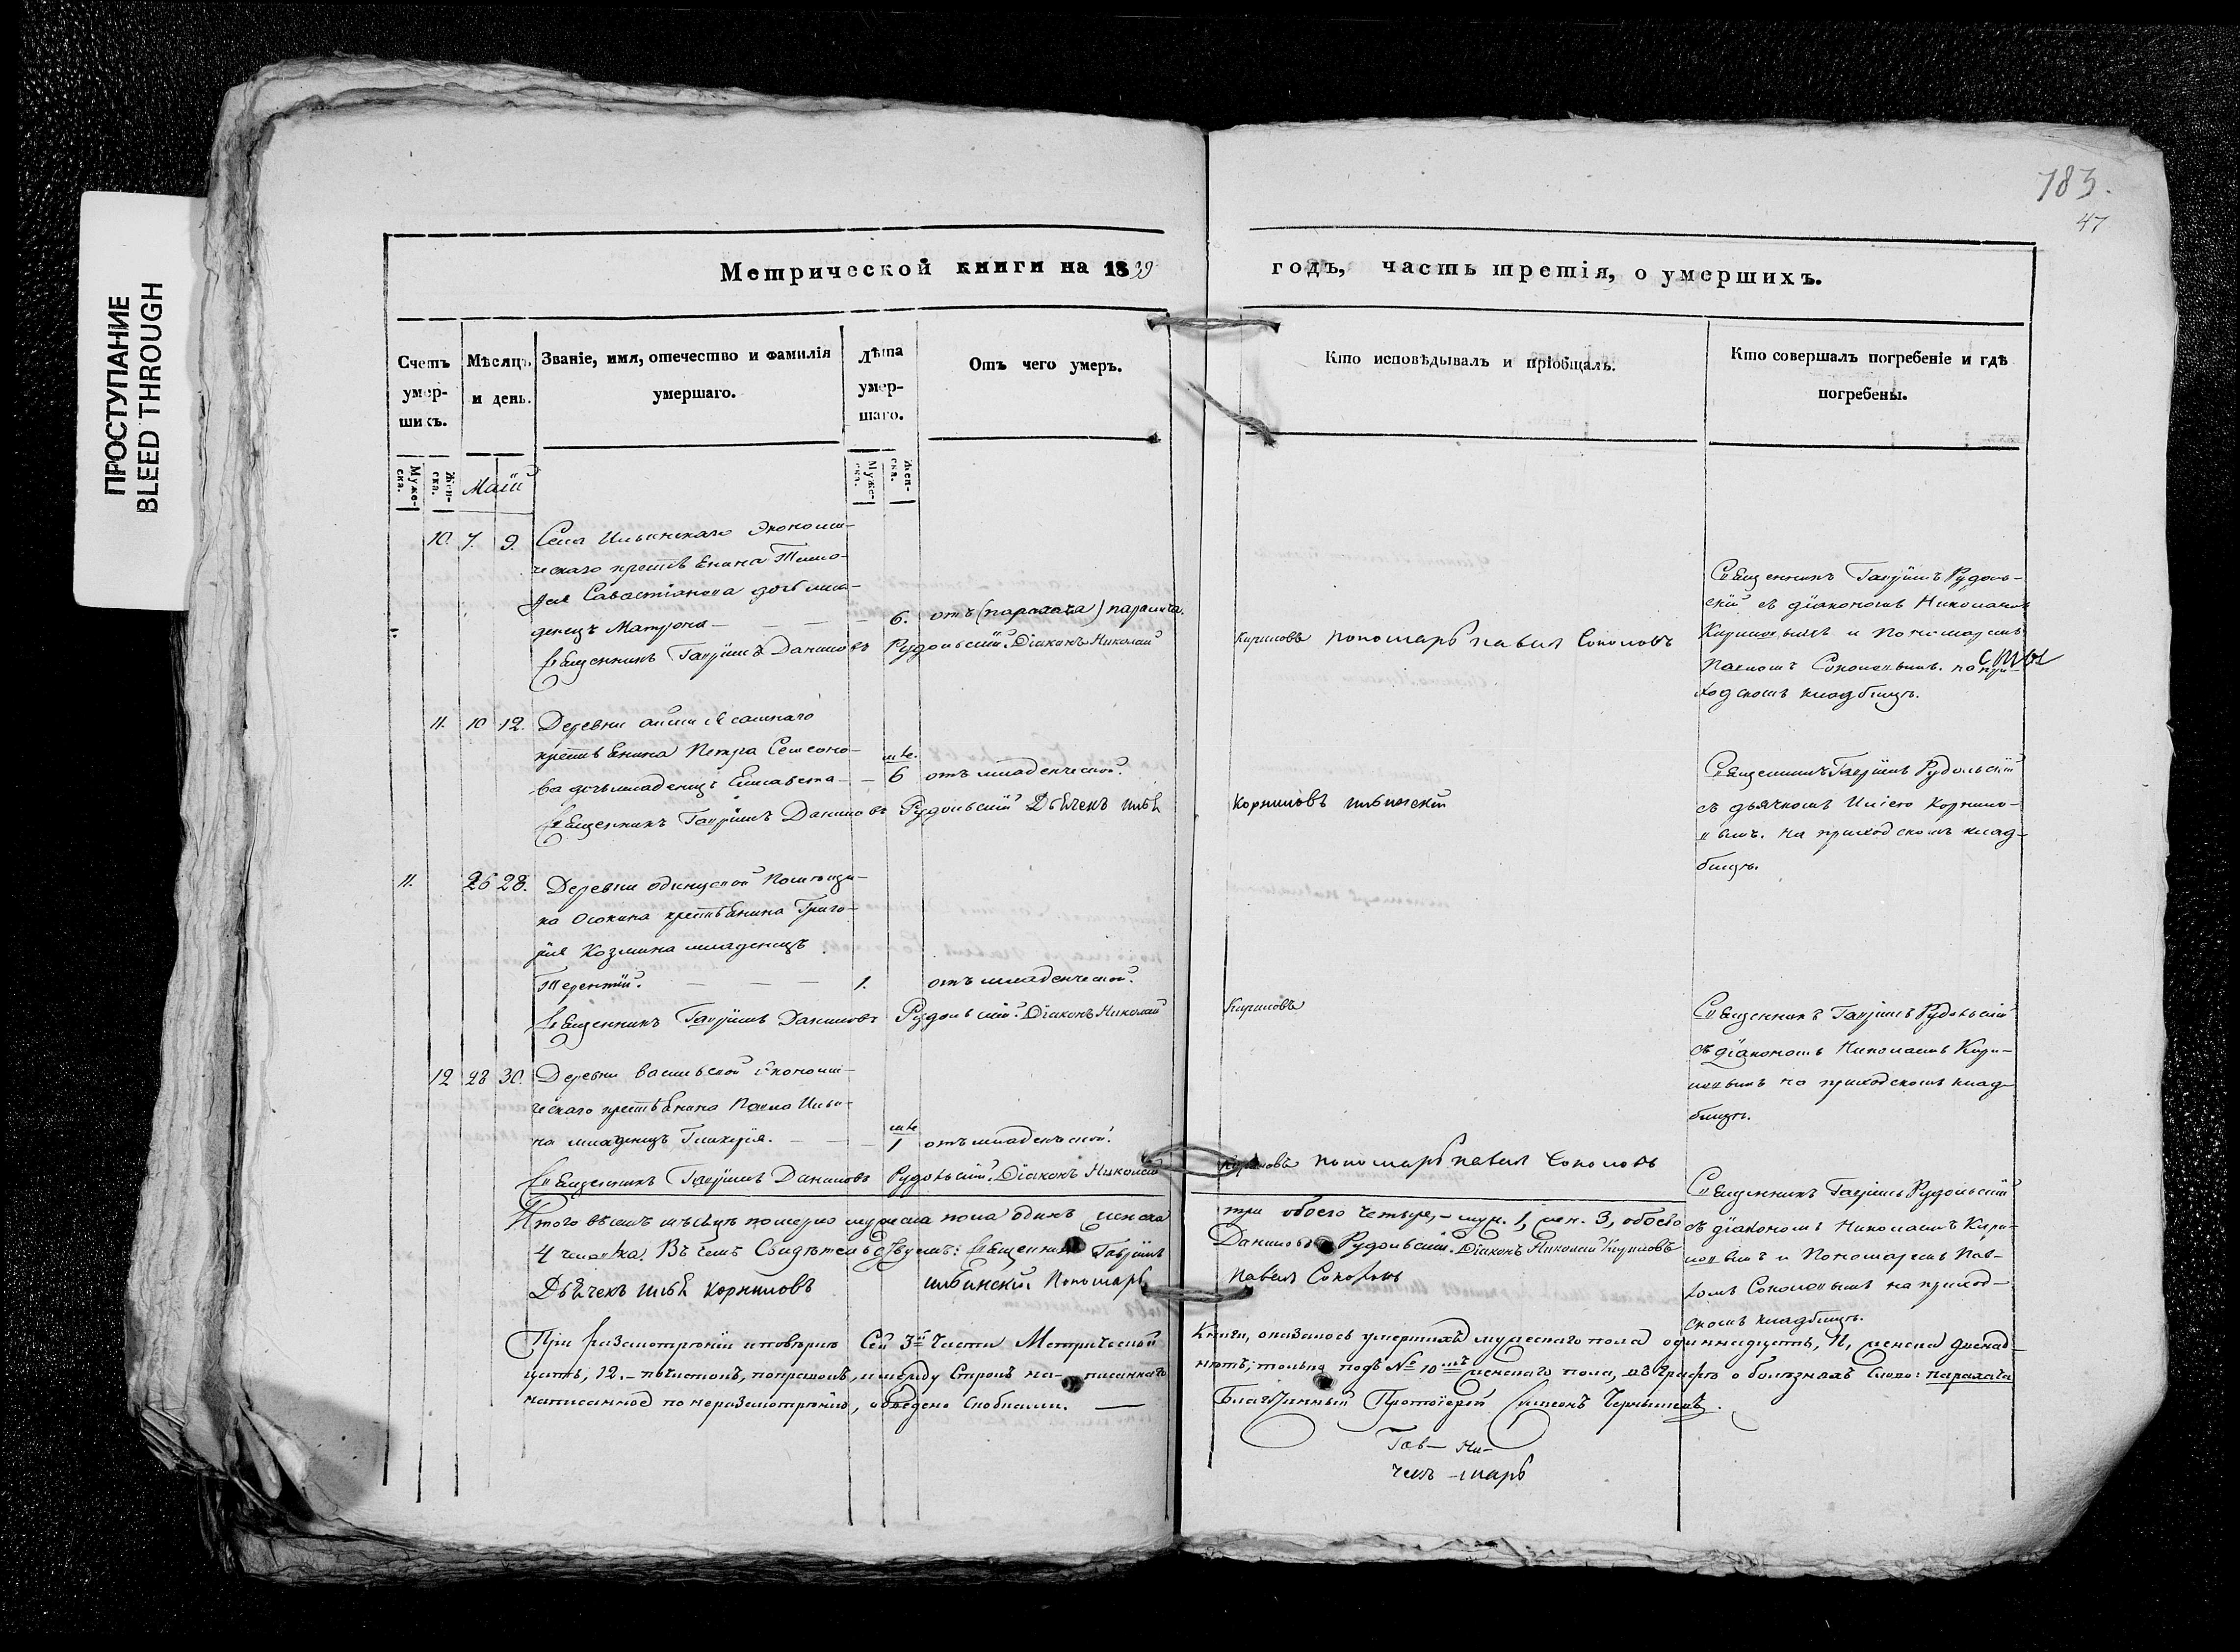 ПРОСТУПАНИЕ
BLEED THROUGH
183.
47
Метрической книги на 1839
годъ, часть третія, о умершихъ.
Счетъ умер-шихъ.
Мѣсяцъ и день.
Званіе, имя, отечество и фамилія умершаго.
Лѣта умер-шаго.
Отъ чего умеръ.
Кто исповѣдывалъ и пріобщалъ.
Кто совершалъ погребеніе и гдѣ погребены.
Муже-ска.
Жен-ска.
Маій
Муже-ска.
Жен-ска.
10. 7. 9. Села Ильинскаго Экономи-
ческаго крестьянина Тимо-
фея Савастіанова дочь мла-
денецъ Матрона — 6. отъ (паралача) паралича.
Священникъ Гавріилъ Даниловъ Рудольскій. Діаконъ Николай
Кириловъ пономарь павел Соколовъ
Священникъ Гавріилъ Рудоль-
скій съ діакономъ Николаемъ
Кириловымъ и Пономаремъ
Павломъ Соколовымъ. на при-
ходскомъ кладбищѣ.
11. 10 12. Деревни
крестьянина Петра Семено-
ва дочь младенецъ Елисавета — 6 отъ младенческой.
Священникъ Гавріилъ Даниловъ Рудольскій Дьячекъ илья
Корниловъ ильинскій
Священникъ Гавріилъ Рудольскій
съ дьячкомъ Ильею Корнило-
вымъ. на приходскомъ клад-
бищѣ.
11. 26 28. Деревни одинцовой Помѣщи-
ка Осокина крестьянина Григо-
рія Козмина младенецъ
Терентій. — 1. отъ младенческой.
Священникъ Гавріилъ Даниловъ Рудольскій. Діаконъ Николай
Кириловъ
Священникъ Гавріилъ Рудольскій
съ діакономъ Николаемъ Кири-
ловымъ на приходскомъ клад-
бищѣ.
12 28 30. Деревни васильевской Економи-
ческаго крестьянина Павла Ильи-
на младенецъ Гликерія. — 1 отъ младенческой.
Священникъ Гавріилъ Даниловъ Рудольскій. Діаконъ Николай
Кириловъ пономарь павел Соколовъ
Священникъ Гавріилъ Рудольскій
съ діакономъ Николаемъ Кири-
ловымъ и Пономаремъ Пав-
ломъ Соколовымъ на приход-
скомъ кладбищѣ.
Итого въ маіѣ мѣсяцѣ померло мужеска пола одинъ женска
три обоего четыре, — муж. 1, жен. 3, обоего
4 человѣка. Въ чемъ Свидѣтельствуемъ: Священникъ Гавріилъ
Даниловъ Рудольскій. Діаконъ Николай Кириловъ
Дьячекъ илья корниловъ ильинскій Пономарь
Павелъ Соколовъ
При разсмотрѣніи и повѣркѣ Сей 3й Части Метрической
Книги, оказалось умершихъ мужескаго пола одиннадцать, 11, женска двенад-
цать, 12. — почистокъ, поправокъ, и между Строкъ на-писаннаго
нѣтъ; только подъ № 10мъ женскаго пола, въ графѣ о болѣзняхъ Слово: паралача
написанное по неразсмотрѣнію, обведено Скобками. —
Благочинный Протоіерей Симеонъ Чернышевъ.
Гав— Ни—
чекъ —марь